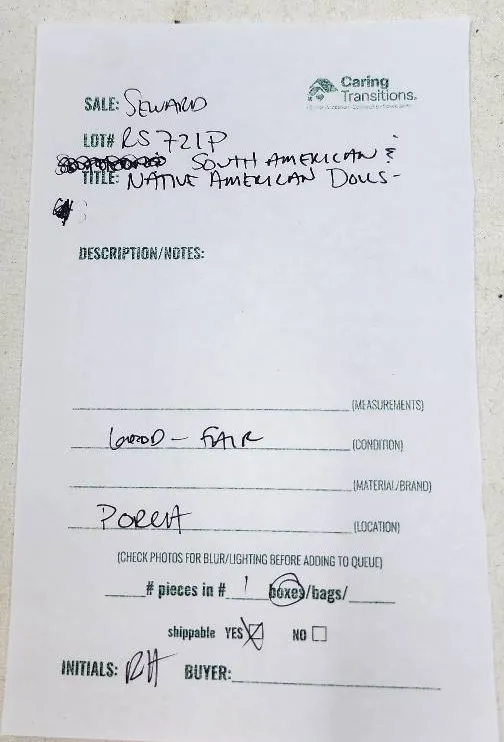 Caring
Transitions.
SALE: SEWARD
LOT# RS721P
SOUTH AMERICAN &
TITLE: NATIVE AMERICAN DOLLS-
DESCRIPTION/NOTES:
(MEASUREMENTS)
GOOD - FAIR (CONDITION)
(MATERIAL/BRAND)
PORCH (LOCATION)
(CHECK PHOTOS FOR BLUR/LIGHTING BEFORE ADDING TO QUEUE)
# pieces in # 1 boxes/bags/
shippable YES NO
INITIALS: RH BUYER: